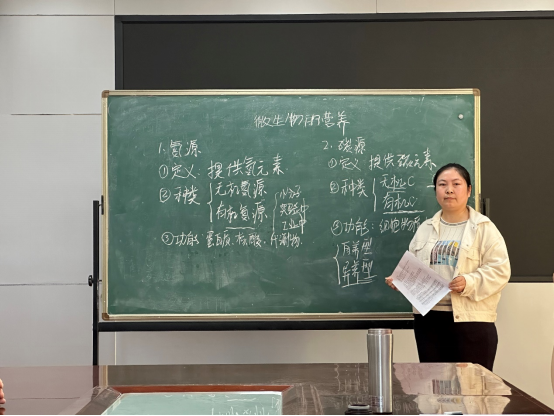 微生物的营养
1. 氮源
①定义: 提供氮元素
②种类 { 无机氮源
有机氮源 { 小分子
实验中
工业中
③功能: 蛋白质、核酸、
2. 碳源
①定义 提供碳元素
②种类 { 无机C
有机C
③功能: 细胞物质
{ 自养型
异养型